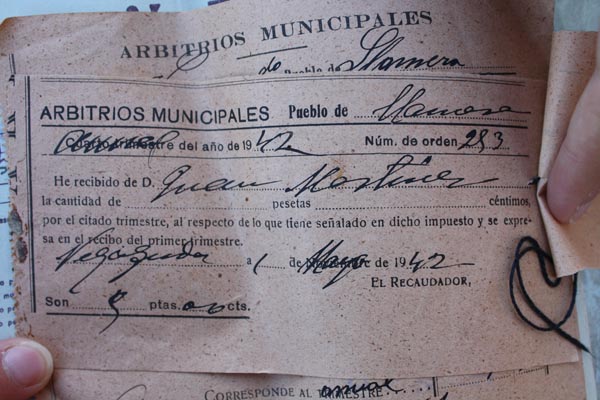 ARBITRIOS MUNICIPALES
de Pueblo de Llamera
ARBITRIOS MUNICIPALES Pueblo de Llamera
Cuarto trimestre del año de 1942 Núm. de orden 283
He recibido de D. Juan Martínez
la cantidad de pesetas céntimos,
por el citado trimestre, al respecto de lo que tiene señalado en dicho impuesto y se expre-
sa en el recibo del primer trimestre.
a 1 de Mayo de 1942
EL RECAUDADOR,
Son 5 ptas. 00 cts.
CORRESPONDE AL TRIMESTRE